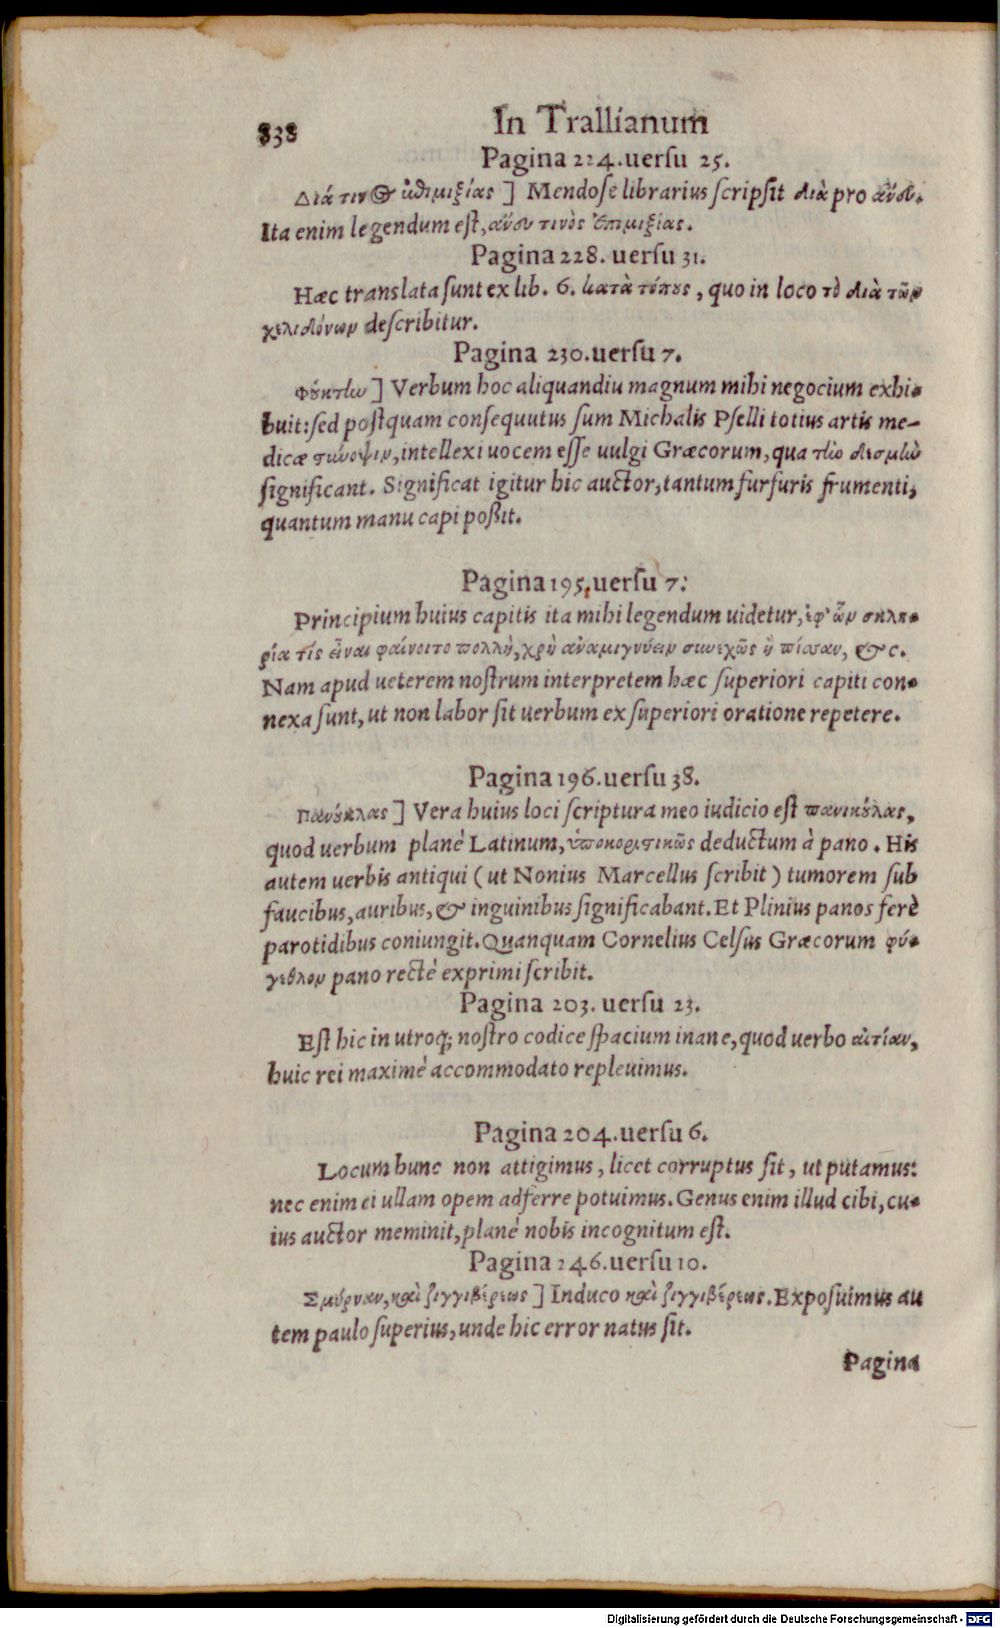 838 In Trallianum
Pagina 224. uersu 25.
Διά τινος ἐπιμιξίας ] Mendose librarius scripsit διὰ pro ἄνευ.
Ita enim legendum est, ἄνευ τινὸς ἐπιμιξίας.
Pagina 228. uersu 31.
Hæc translata sunt ex lib. 6. κατὰ τόπους, quo in loco τὸ διὰ τῶν
χελιδόνων describitur.
Pagina 230. uersu 7.
Φούκτων ] Verbum hoc aliquandiu magnum mihi negocium exhi-
buit: sed postquam consequutus sum Michalis Pselli totius artis me-
dicæ σύνοψιν, intellexi uocem esse uulgi Græcorum, qua τὴν δεσμὴν
significant. Significat igitur hic auctor, tantum furfuris frumenti,
quantum manu capi poßit.
Pagina 195. uersu 7:
Principium huius capitis ita mihi legendum uidetur, ἐφ' ὧν σκλη-
ρία τίς εἶναι φαίνοιτο πολλὴ, χρὴ ἀναμιγνύειν συνεχῶς ἢ πίσσαν, &c.
Nam apud ueterem nostrum interpretem hæc superiori capiti con-
nexa sunt, ut non labor sit uerbum ex superiori oratione repetere.
Pagina 196. uersu 38.
Πανούκλας ] Vera huius loci scriptura meo iudicio est πανικούλας,
quod uerbum planè Latinum, ὑποκοριστικῶς deductum à pano. His
autem uerbis antiqui ( ut Nonius Marcellus scribit ) tumorem sub
faucibus, auribus, & inguinibus significabant. Et Plinius panos ferè
parotidibus coniungit. Quanquam Cornelius Celsus Græcorum φύ-
γεθλον pano rectè exprimi scribit.
Pagina 203. uersu 23.
Est hic in utroq; nostro codice spacium inane, quod uerbo αἰτίαν,
huic rei maximè accommodato repleuimus.
Pagina 204. uersu 6.
Locum hunc non attigimus, licet corruptus sit, ut putamus:
nec enim ei ullam opem adferre potuimus. Genus enim illud cibi, cu-
ius auctor meminit, planè nobis incognitum est.
Pagina 246. uersu 10.
Σμύρναν, καὶ ζιγγιβέρεως ] Induco καὶ ζιγγιβέρεως. Exposuimus au
tem paulo superius, unde hic error natus sit.
Pagina
Digitalisierung gefördert durch die Deutsche Forschungsgemeinschaft - DFG